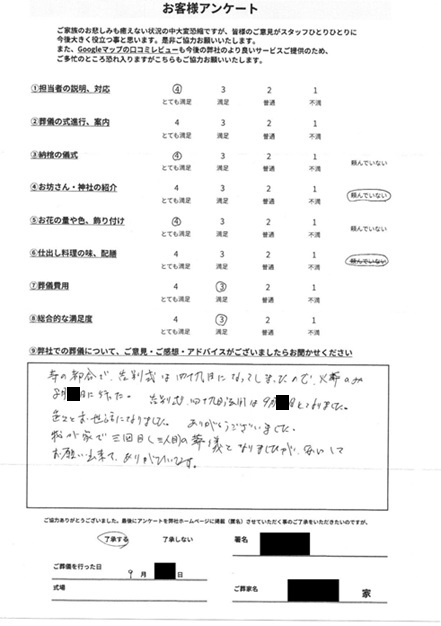 お客様アンケート
ご家族のお悲しみも癒えない状況の中大変恐縮ですが、皆様のご意見がスタッフひとりひとりに
今後大きく役立つ事と思います。是非ご協力お願いいたします。
また、Googleマップの口コミレビューも今後の弊社のより良いサービスご提供のため、
ご多忙のところ恐れ入りますがこちらもご協力お願いいたします。
①担当者の説明、対応 4 3 2 1
とても満足 満足 普通 不満
②葬儀の式進行、案内 4 3 2 1
とても満足 満足 普通 不満
③納棺の儀式 4 3 2 1
とても満足 満足 普通 不満 頼んでいない
④お坊さん・神社の紹介 4 3 2 1
とても満足 満足 普通 不満 頼んでいない
⑤お花の量や色、飾り付け 4 3 2 1
とても満足 満足 普通 不満 頼んでいない
⑥仕出し料理の味、配膳 4 3 2 1
とても満足 満足 普通 不満 頼んでいない
⑦葬儀費用 4 3 2 1
とても満足 満足 普通 不満
⑧総合的な満足度 4 3 2 1
とても満足 満足 普通 不満
⑨弊社での葬儀について、ご意見・ご感想・アドバイスがございましたらお聞かせください
寺の都合で、告別式は四十九日になってしまったので、火葬のみ
日に行った。 告別式、四十九日法要は9月 日となりました。
色々とお世話になりました。 ありがとうございました。
我が家で三回目(三人目)の葬儀となりましたが、安心して
お願い出来て、ありがたいです。
ご協力ありがとうございました。最後にアンケートを弊社ホームページに掲載（匿名）させていただく事のご了承をいただきたいのですが、
了承する 了承しない 署名
ご葬儀を行った日
9 月 日
式場 ご葬家名 家